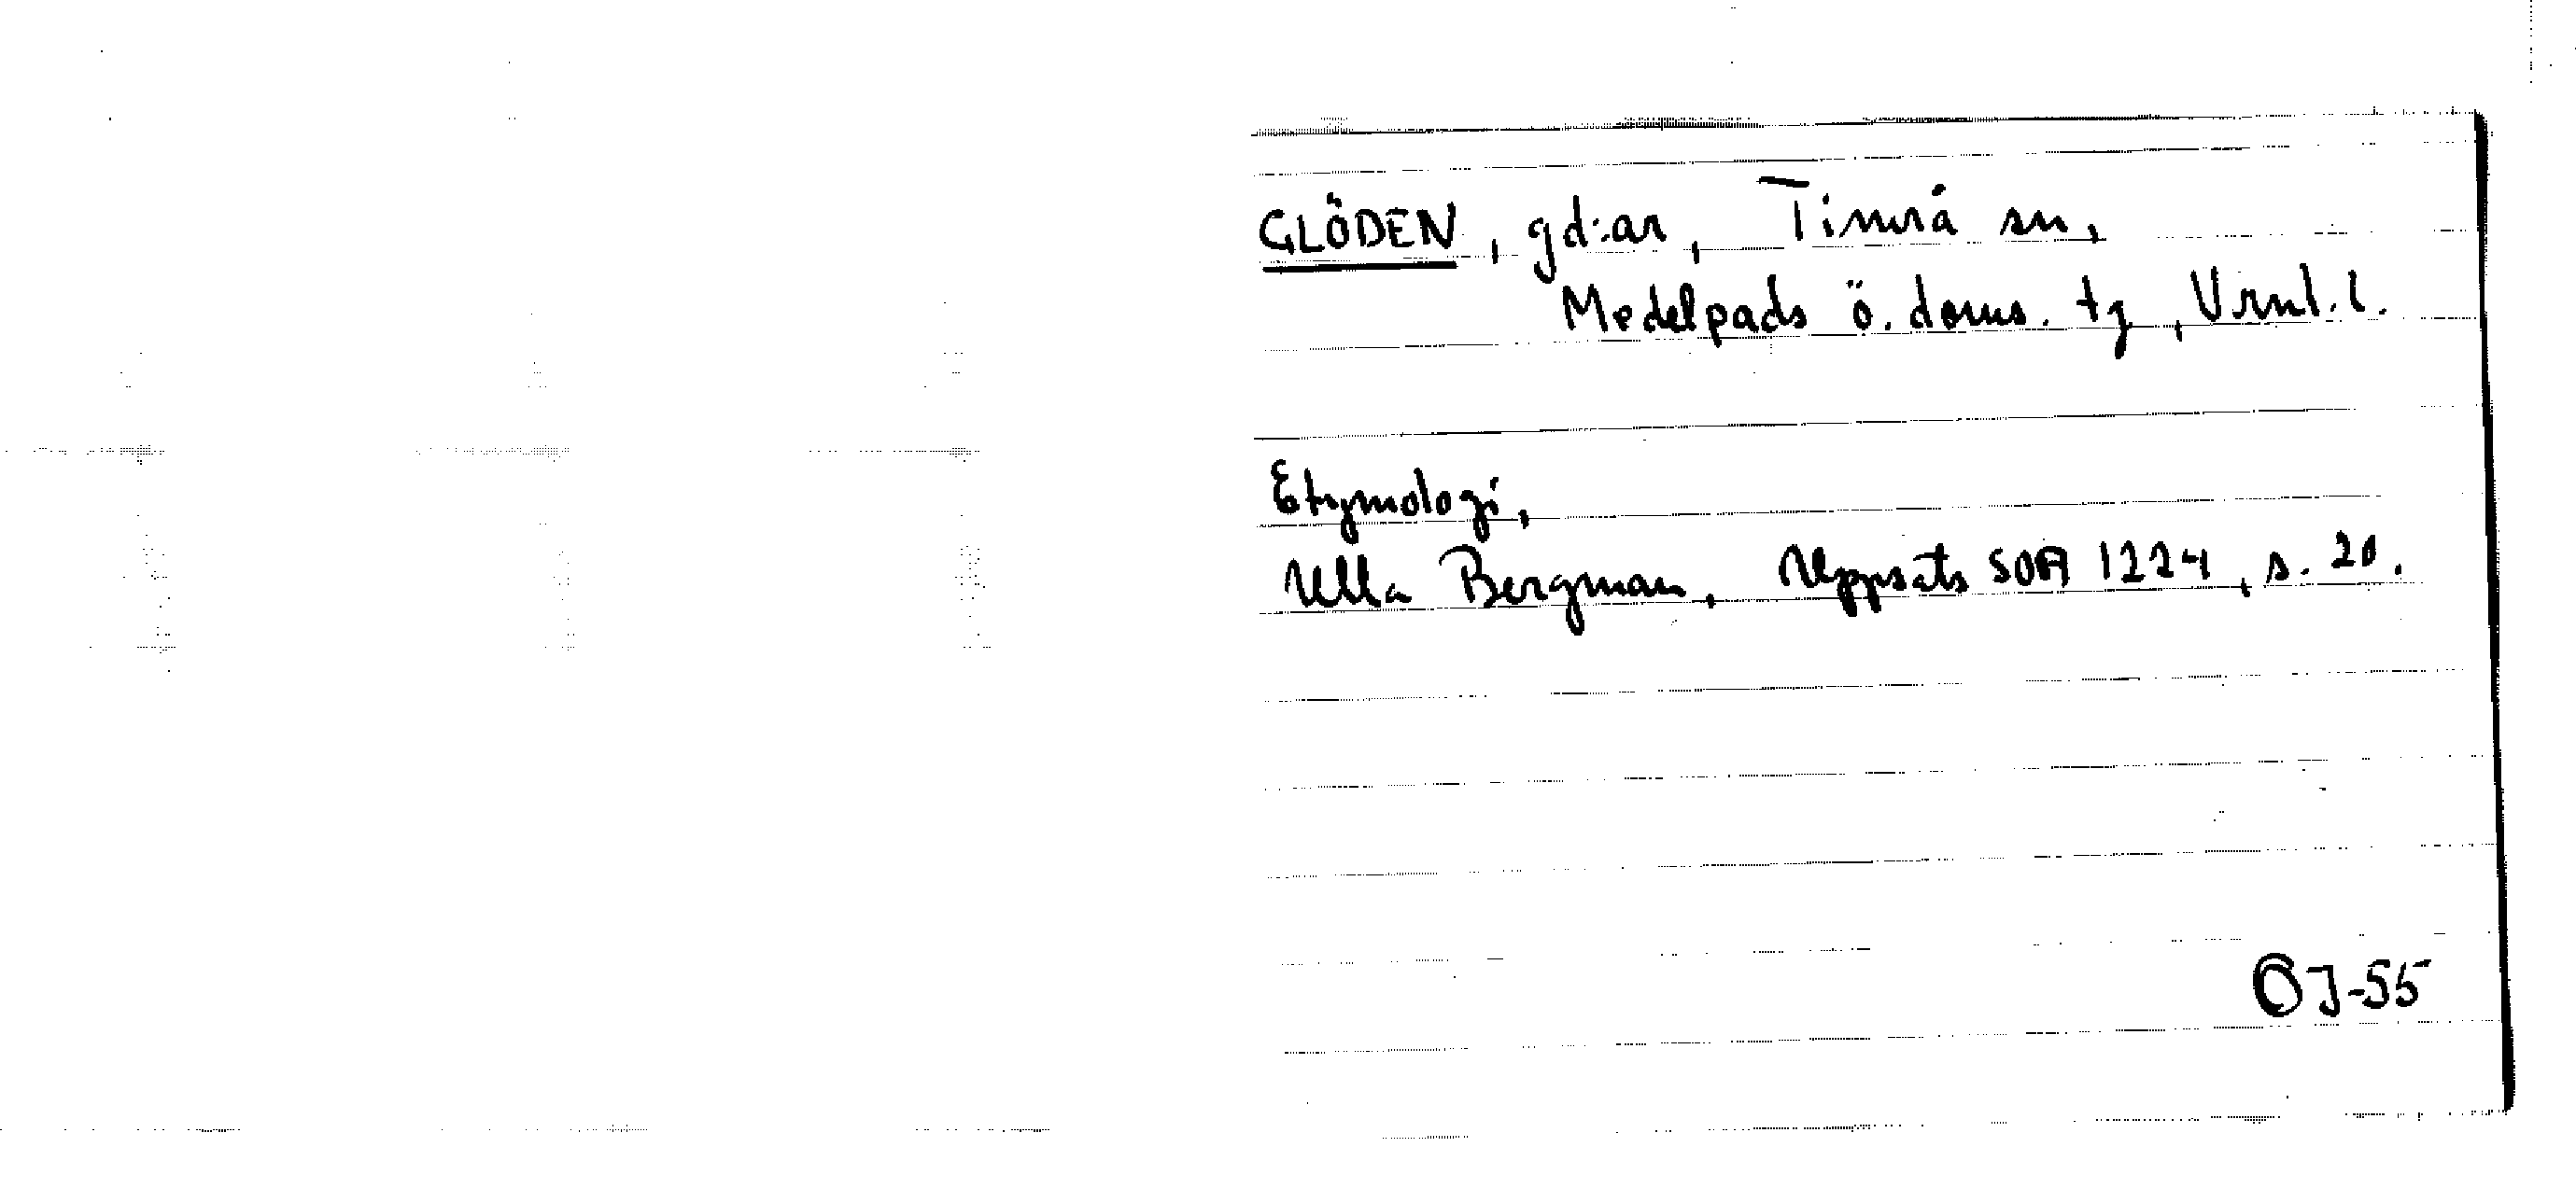 GLÖDEN, gd:ar, Timrå sn,
Medelpads ö. doms. tg, Vrnl. l.
Etymologi,
Ulla Bergman, Uppsats SOA 1224, s. 20.
ÖJ-55